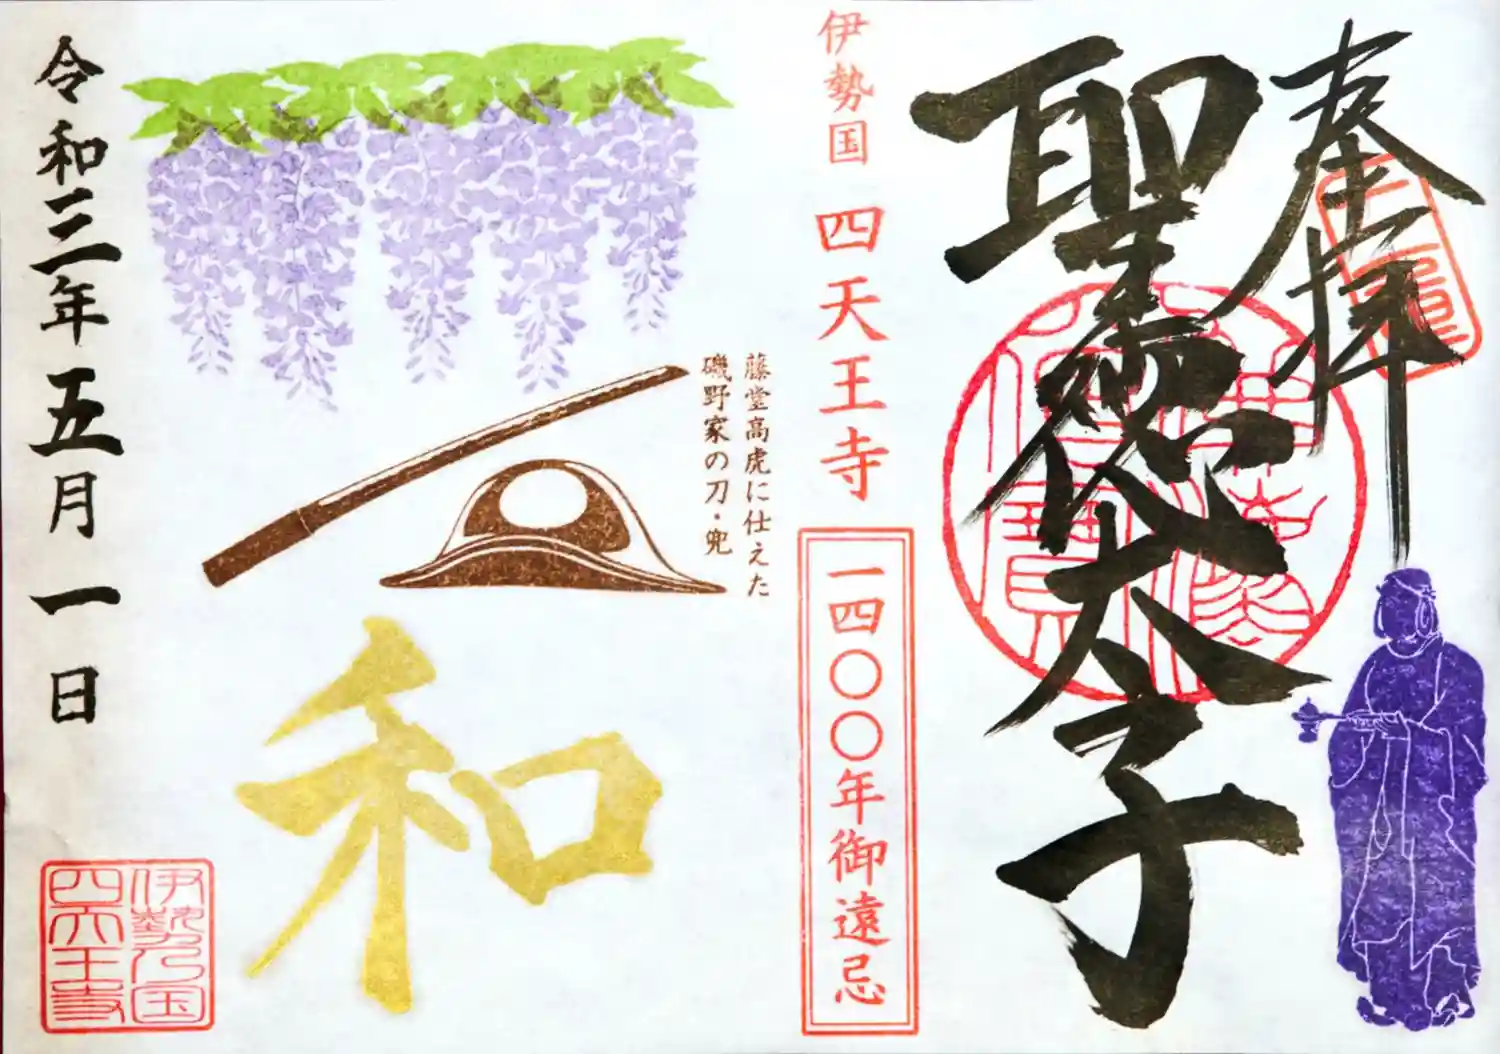 奉拝
聖徳太子
伊勢国 四天王寺
一四〇〇年御遠忌
藤堂高虎に仕えた
磯野家の刀・兜
和
令和三年五月一日
伊勢乃国
四天王寺